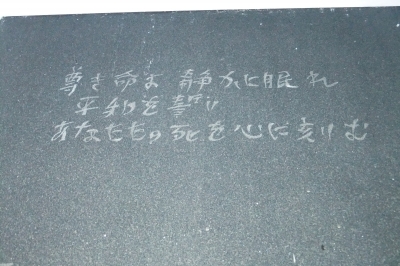 尊き命よ 静かに眠れ
平和を誓い
あなたたちの死を心に刻む